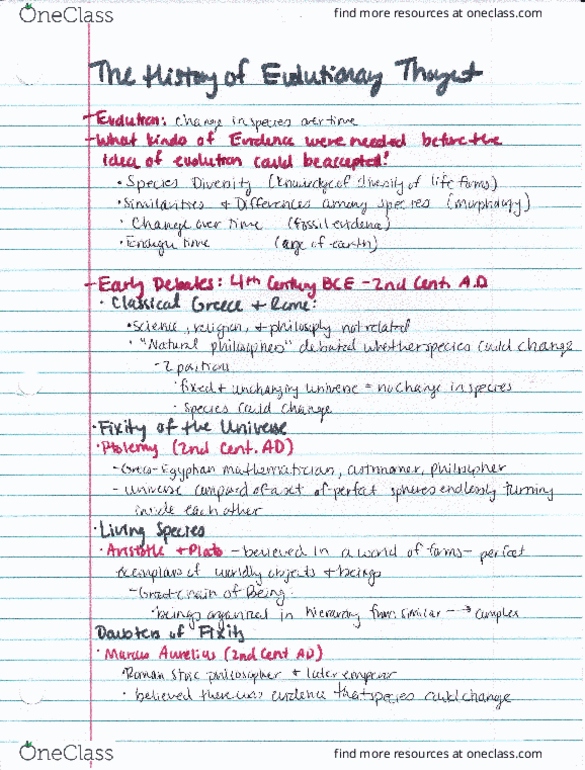 OneClass
find more resources at oneclass.com
The History of Evolutionary Thought
- Evolution: change in species over time
- What kinds of Evidence were needed before the
idea of evolution could be accepted?
• Species Diversity (knowledge of diversity of life forms)
• Similarities + Differences among species (morphology)
• Change over time (fossil evidence)
• Enough time (age of earth)
- Early Debates: 4th Century BCE - 2nd Cent. A.D
• Classical Greece + Rome:
• Science, religion, + philosophy not related
• "Natural philosophers" debated whether species could change
- 2 positions
• fixed + unchanging universe = no change in species
• Species could change
• Fixity of the Universe
• Ptolemy (2nd Cent. AD)
- Greco-Egyptian mathematician, astronomer, philosopher
- universe composed of a set of perfect spheres endlessly turning
inside each other
• Living Species
• Aristotle + Plato - believed in a world of forms - perfect
exemplars of worldly objects + beings
- Great chain of Being:
• beings organized in hierarchy from similar --→ complex
Doubters of Fixity
• Marcus Aurelius (2nd Cent AD)
• Roman stoic philosopher + later emperor
• believed there was evidence that species could change
OneClass
find more resources at oneclass.com